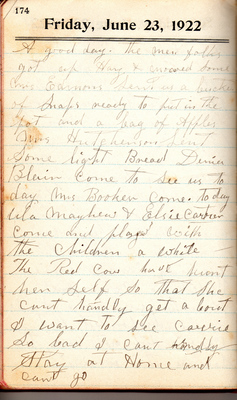 174
Friday, June 23, 1922
A good day. the men folks
got up Hay & moved some
Mrs Eamons sent us a bucket
of snaps ready to put in the
pot and a bag of Apples
Mrs Hutcherson sent
some light Bread Denise
Blair come to see us to
day Mrs Booker come. to day
Lula Mayhew & Elsie Carter
come and played with
the children a while
The Red Cow have hurt
her self so that she
cant hardly get a bout
I want to see Carrie
So bad I cant hardly
Stay at Home and
cant go